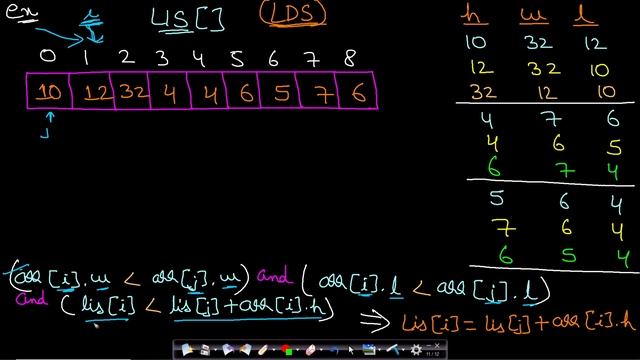 ex i LIS[] (LDS) h w l
0 1 2 3 4 5 6 7 8
10 12 32 4 4 6 5 7 6
j
10 32 12
12 32 10
32 12 10
4 7 6
4 6 5
6 7 4
5 6 4
7 6 4
6 5 4
(arr[i].w < arr[j].w) and (arr[i].l < arr[j].l)
and (lis[i] < lis[j]+arr[i].h) ⇒ lis[i] = lis[j]+arr[i].h
11 / 12